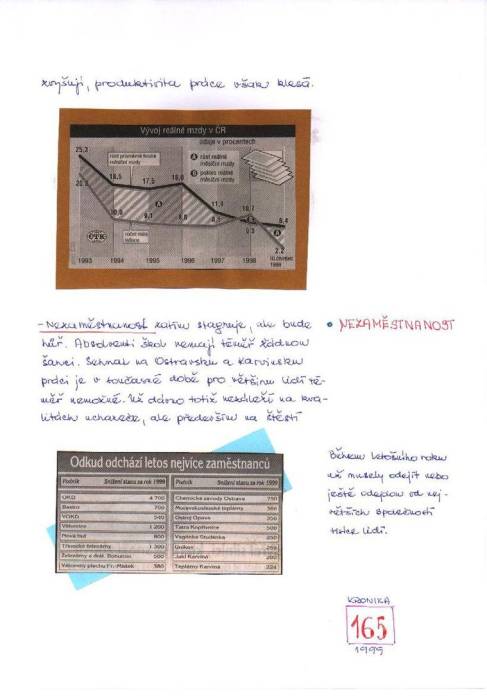 zvyšují, produktivita práce však klesá.
Vývoj reálné mzdy v ČR
údaje v procentech
25,3
růst průměrné hrubé
měsíční mzdy
A růst reálné
měsíční mzdy
B pokles reálné
měsíční mzdy
18,5
17,5
18,0
20,8
10,0
9,1
8,8
11,9
8,5
10,7
9,3
6,4
2,2
A
A
ČTK
roční míra
inflace
1993 1994 1995 1996 1997 1998
1999
- Nezaměstnanost zatím stagnuje, ale bude
hůř. Absolventi škol nemají téměř žádnou
šanci. Sehnat na Ostravsku a Karvinsku
práci je v současné době pro většinu lidí té-
měř nemožné. Už dávno totiž nezáleží na kva-
litách uchazeče, ale především na štěstí
• NEZAMĚSTNANOST
Odkud odchází letos nejvíce zaměstnanců
Podnik Snížení stavu za rok 1999
OKD 4 700
Bastro 700
VOKD 540
Vítkovice 1 200
Nová huť 800
Třinecké železárny 1 300
Železárny a drát. Bohumín 500
Válcovny plechu Fr.-Místek 380
Podnik Snížení stavu za rok 1999
Chemické závody Ostrava 750
Moravskoslezské teplárny 360
Ostroj Opava 300
Tatra Kopřivnice 500
Vagónka Studénka 250
Unikov 259
Jäkl Karviná 200
Teplárny Karviná 224
Během letošního roku
už musely odejít nebo
ještě odejdou od nej-
větších společností
tisíce lidí.
KRONIKA
165
1999